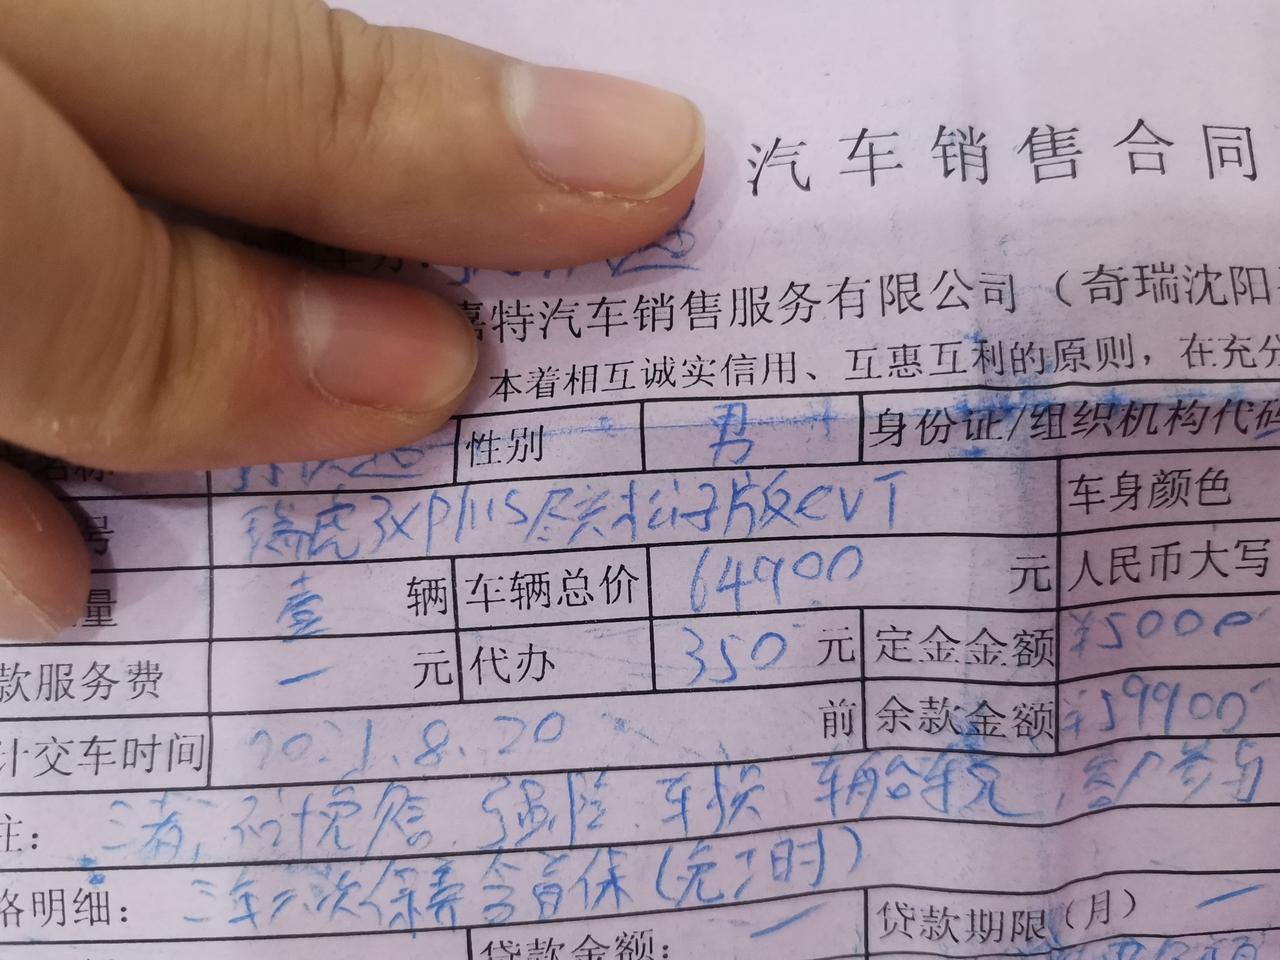 汽车销售合同
嘉特汽车销售服务有限公司（奇瑞沈阳
本着相互诚实信用、互惠互利的原则，在充分
名称 性别 男 身份证/组织机构代码
号 瑞虎3xplus 松子版CVT 车身颜色
量 壹 辆 车辆总价 64900 元 人民币大写
款服务费 一 元 代办 350 元 定金金额 ¥5000
计交车时间 2021.8.20 前 余款金额 ¥59900
注： 强险 车损
格明细： 三年六次保养含首保（免工时）
贷款金额： 一 贷款期限（月） 一